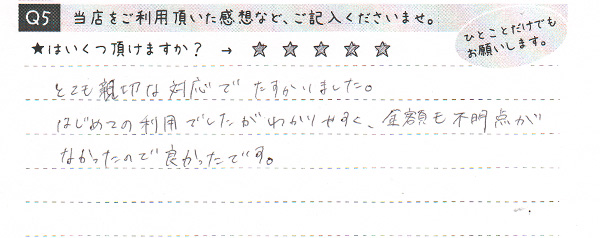 Q5 当店をご利用頂いた感想など、ご記入くださいませ。
★はいくつ頂けますか？ → ☆☆☆☆☆
ひとことだけでも
お願いします。
とても親切な対応でたすかりました。
はじめての利用でしたがわかりやすく、金額も不明点が
なかったので良かったです。